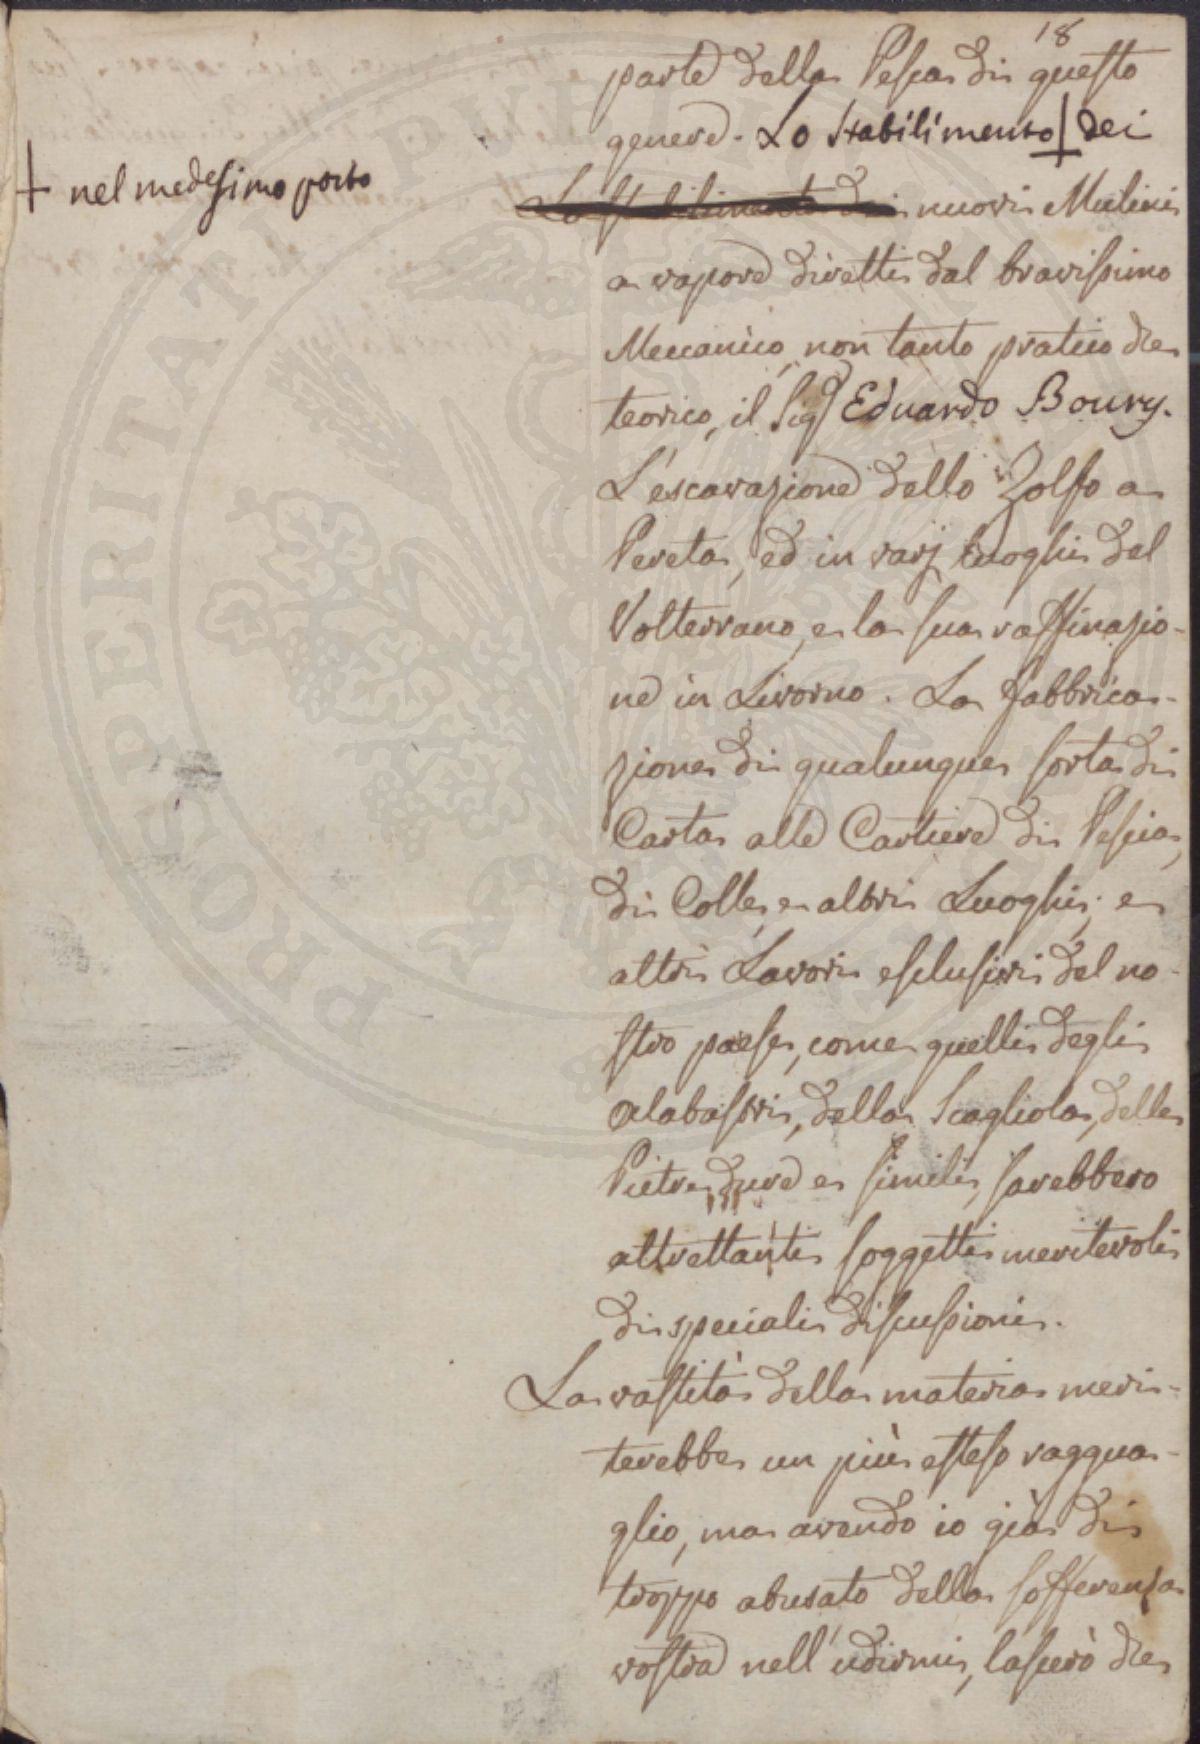 18
parte della Pesca di questo
genere. Lo Stabilimento † dei
† nel medesimo porto
Lo stabilimento dei nuovi Mulini
a vapore diretti dal bravissimo
Meccanico, non tanto pratico che
teorico, il Sigr Eduardo Boury.
L'escavazione dello Zolfo a
Pereta, ed in varj luoghi del
Volterrano, e la sua raffinazio-
ne in Livorno. La fabbrica-
zione di qualunque sorta di
Carta alle Cartiere di Pescia,
di Colle, e altri Luoghi; e
altri Lavori esclusivi del no-
stro paese, come quelli degli
alabastri, della Scagliola, delle
Pietre dure e simili, sarebbero
altrettanti soggetti meritevoli
di speciali discussioni.
La vastità della materia meri-
terebbe un più esteso raggua-
glio, ma avendo io già di
troppo abusato della sofferenza
vostra nell'udirmi, lascerò che
PROSPERITATI PUBLICAE